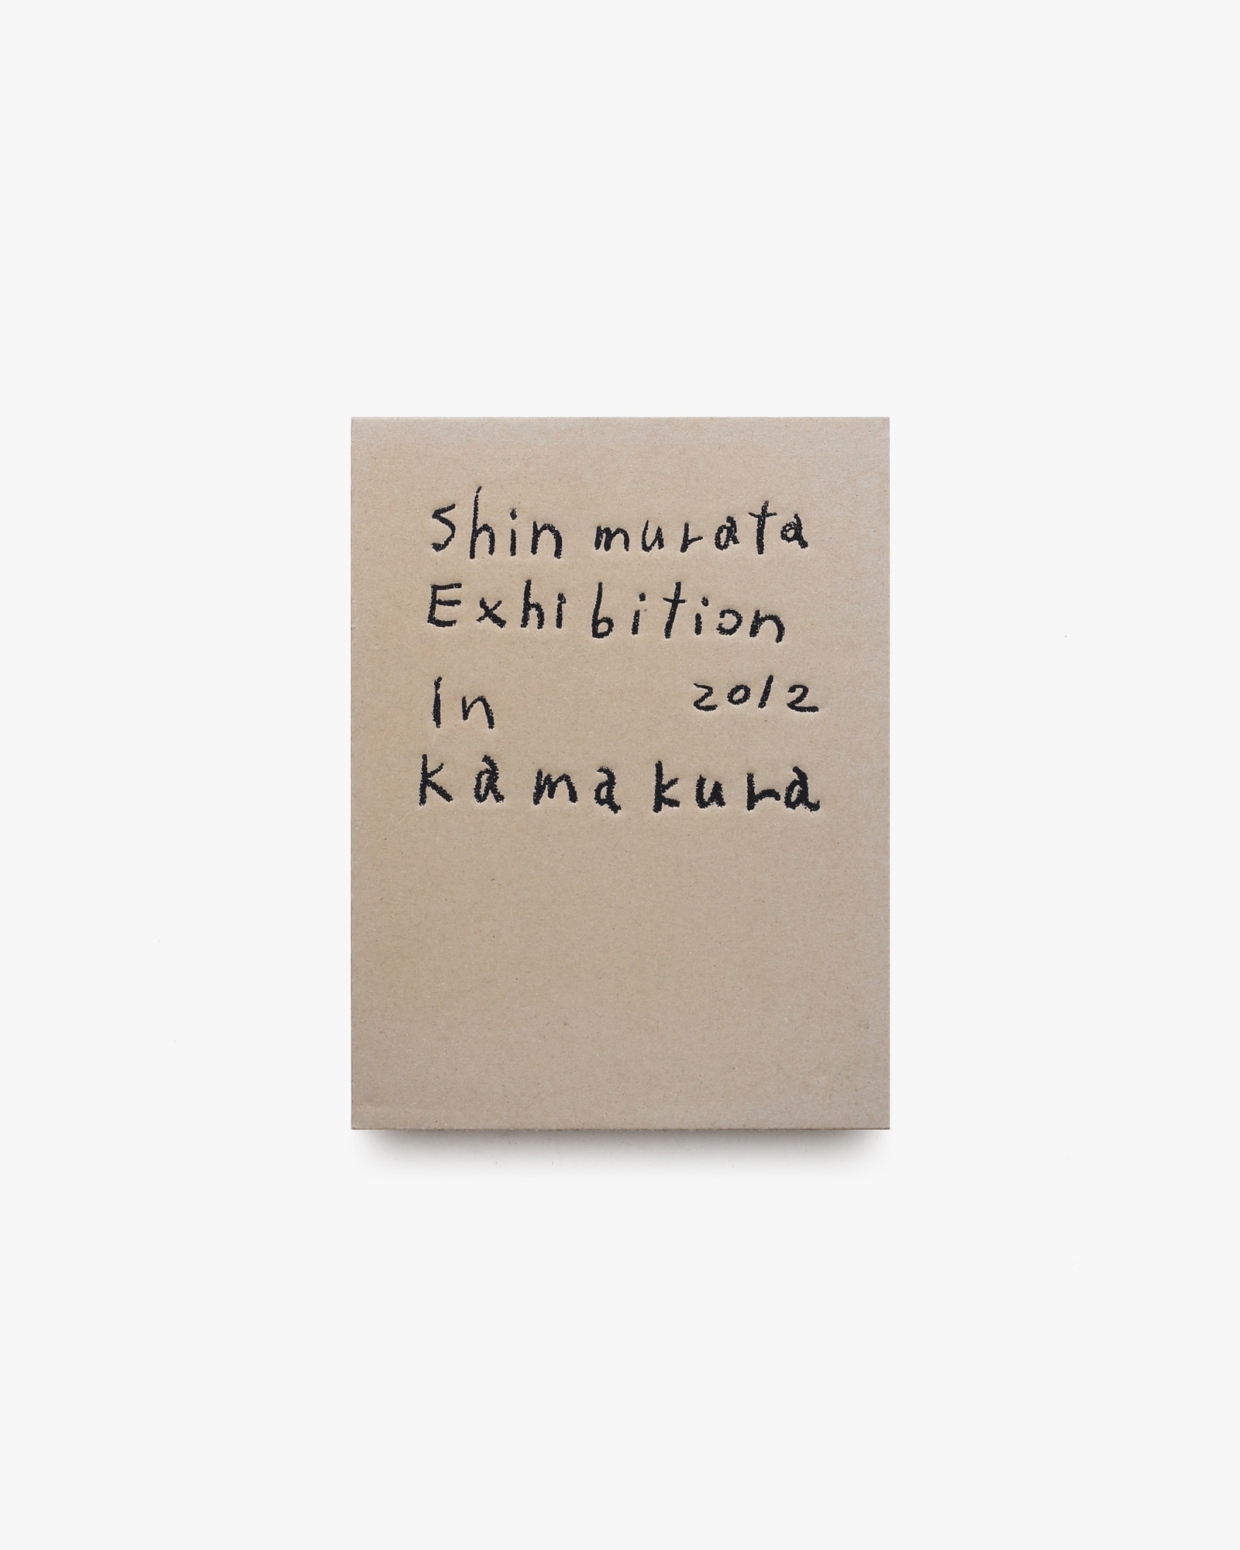 Shin murata
Exhibition
In 2012
kamakura